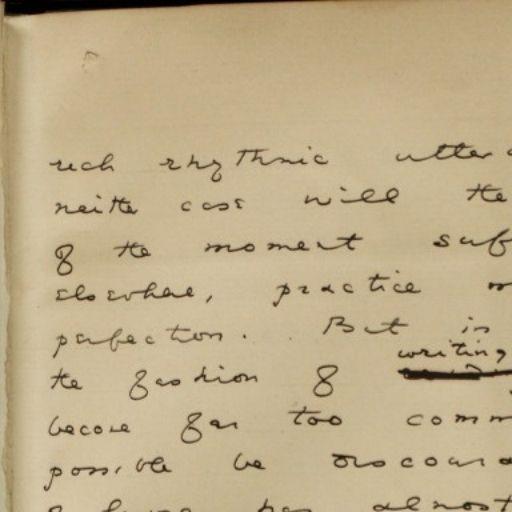 such rhythmic utter
neither case will the
of the moment suf
elsewhere, practice m
perfection. But in
writing
the fashion of
become far too comm
possible be discoura
almost